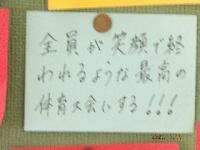 全員が笑顔で終
われるような最高の
体育大会にする!!!